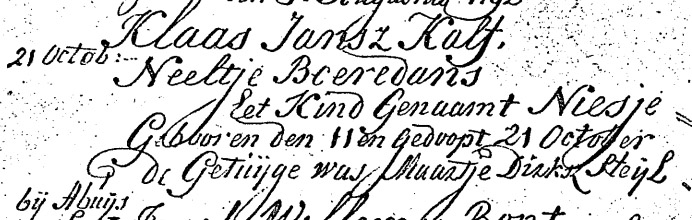 Klaas Jansz Kalf.
21 Octob:
Neeltje Boeredans
Het Kind Genaamt Niesje
Gebooren den 11en Gedoopt 21 October
de Getuijge was Maartje Dirksz Steijl
bij Abuijs